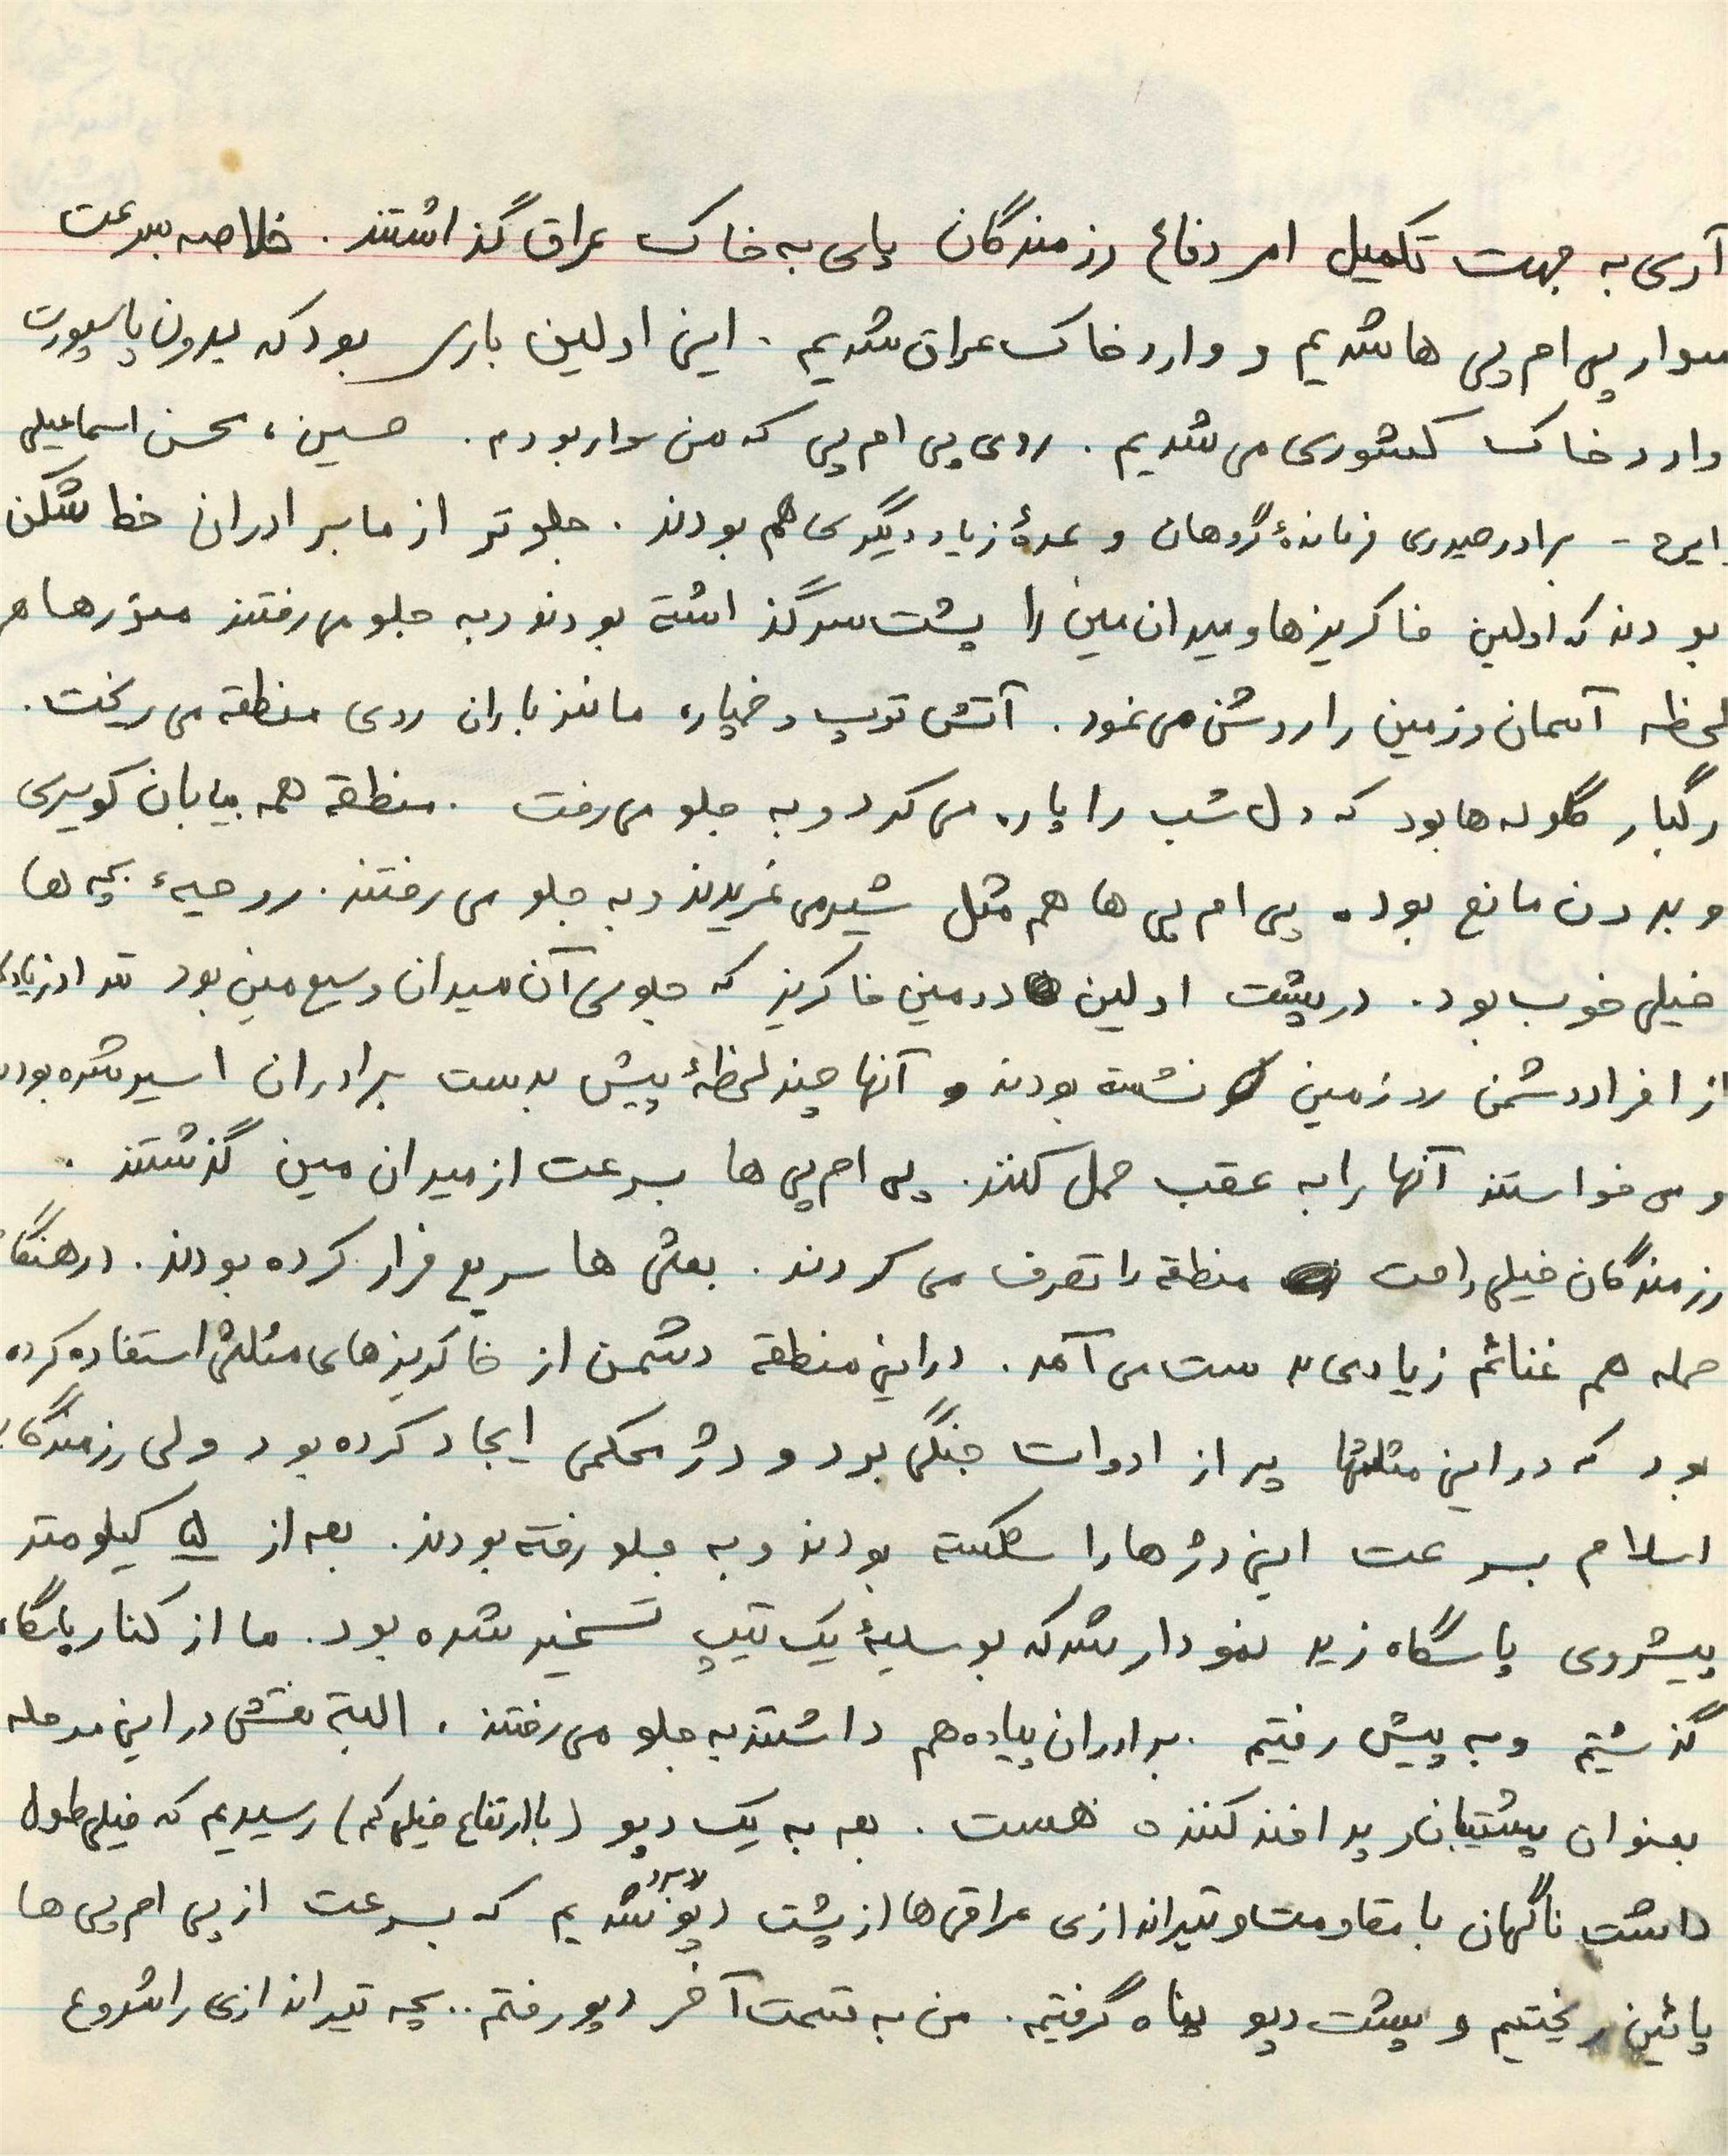 آری به جهت تکمیل امر دفاع رزمندگان پای به خاک عراق گذاشتند . خلاصه بسرعت
سوار پی ام پی ها شدیم و وارد خاک عراق شدیم . این اولین باری بود که بدون پاسپورت
وارد خاک کشوری می شدیم . روی پی ام پی که من سوار بودم . حسین ، محسن اسماعیلی
ایرج - برادر حیدری فرماندهٔ گروهان و عدهٔ زیاد دیگری هم بودند . جلوتر از ما برادران خط شکن
بودند که اولین خاکریزها و میدان مین را پشت سر گذاشته بودند و به جلو می رفتند منورها هر
لحظه آسمان و زمین را روشن می نمود . آتش توپ و خمپاره مانند باران روی منطقه می ریخت .
رگبار گلوله ها بود که دل شب را پاره می کرد و به جلو می رفت . منطقه همه بیابان کویری
و بدون مانع بود . پی ام پی ها هم مثل شیر می غریدند و به جلو می رفتند . روحیهٔ بچه ها
خیلی خوب بود . در پشت اولین دومین خاکریز که جلوی آن میدان وسیع مین بود تعداد زیادی
از افراد دشمن رو زمین نشسته بودند و آنها چند لحظهٔ پیش بدست برادران اسیر شده بودند
و می خواستند آنها را به عقب حمل کنند . پی ام پی ها بسرعت از میدان مین گذشتند .
رزمندگان خیلی راحت منطقه را تصرف می کردند . بعثی ها سریع فرار کرده بودند . در هنگام
حمله هم غنائم زیادی بدست می آمد . در این منطقه دشمن از خاکریزهای مثلثی استفاده کرده
بود که در این مثلثها پر از ادوات جنگی بود و دژ محکمی ایجاد کرده بود ولی رزمندگان
اسلام بسرعت این دژها را شکسته بودند و به جلو رفته بودند . بعد از ۵ کیلومتر
پیشروی پاسگاه زید نمودار شد که بوسیلهٔ یک تیپ تسخیر شده بود . ما از کنار پاسگاه
گذشتیم و به پیش رفتیم . برادران پیاده هم داشتند به جلو می رفتند . البته نقشش در این مرحله
بعنوان پشتیبان و پدافند کننده هست . بعد به یک دپو ( با ارتفاع خیلی کم ) رسیدیم که خیلی طول
داشت ناگهان با مقاومت و تیراندازی عراقی ها از پشت دپو روبرو شدیم که بسرعت از پی ام پی ها
پائین ریختیم و پشت دپو پناه گرفتیم . من به قسمت آخر دپو رفتم .. بچه تیراندازی را شروع